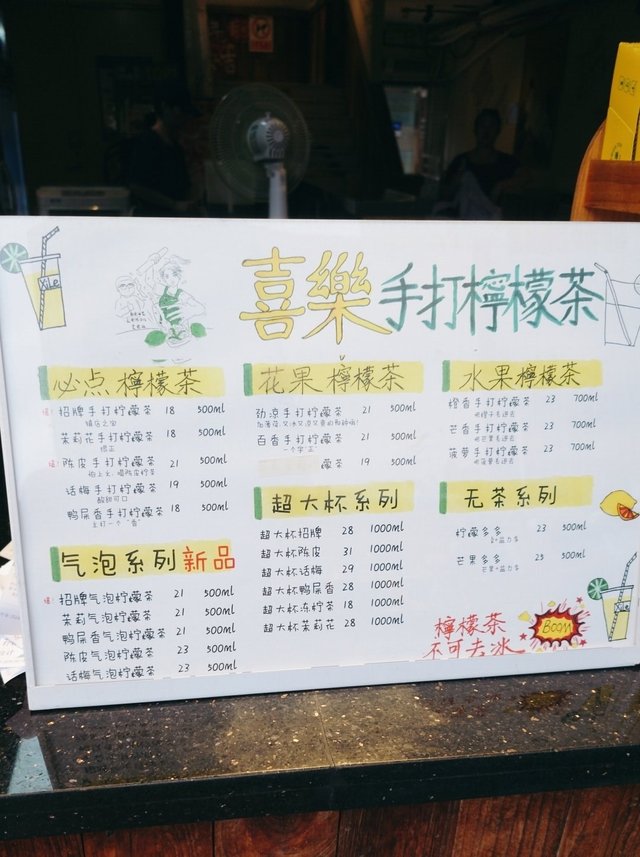 喜樂手打檸檬茶
XiLe
必点檸檬茶
招牌手打柠檬茶 18 500ml
镇店之宝
茉莉花手打柠檬茶 18 500ml
陈皮手打柠檬茶 21 500ml
话梅手打柠檬茶 19 500ml
酸甜可口
鸭屎香手打柠檬茶 18 500ml
主打一个"香"
气泡系列新品
招牌气泡柠檬茶 21 500ml
茉莉气泡柠檬茶 21 500ml
鸭屎香气泡柠檬茶 22 500ml
陈皮气泡柠檬茶 23 500ml
话梅气泡柠檬茶 23 500ml
花果檸檬茶
劲凉手打柠檬茶 21 500ml
百香手打柠檬茶 21 500ml
一个字"正"
檬茶 19 500ml
超大杯系列
超大杯招牌 28 1000ml
超大杯陈皮 31 1000ml
超大杯话梅 29 1000ml
超大杯鸭屎香 28 1000ml
超大杯冻柠茶 18 1000ml
超大杯茉莉花 28 1000ml
水果檸檬茶
橙香手打柠檬茶 23 700ml
芒香手打柠檬茶 23 700ml
菠萝手打柠檬茶 23 700ml
无茶系列
柠檬多多 23 500ml
芒果多多 25 500ml
檸檬茶
不可去冰
BOOM